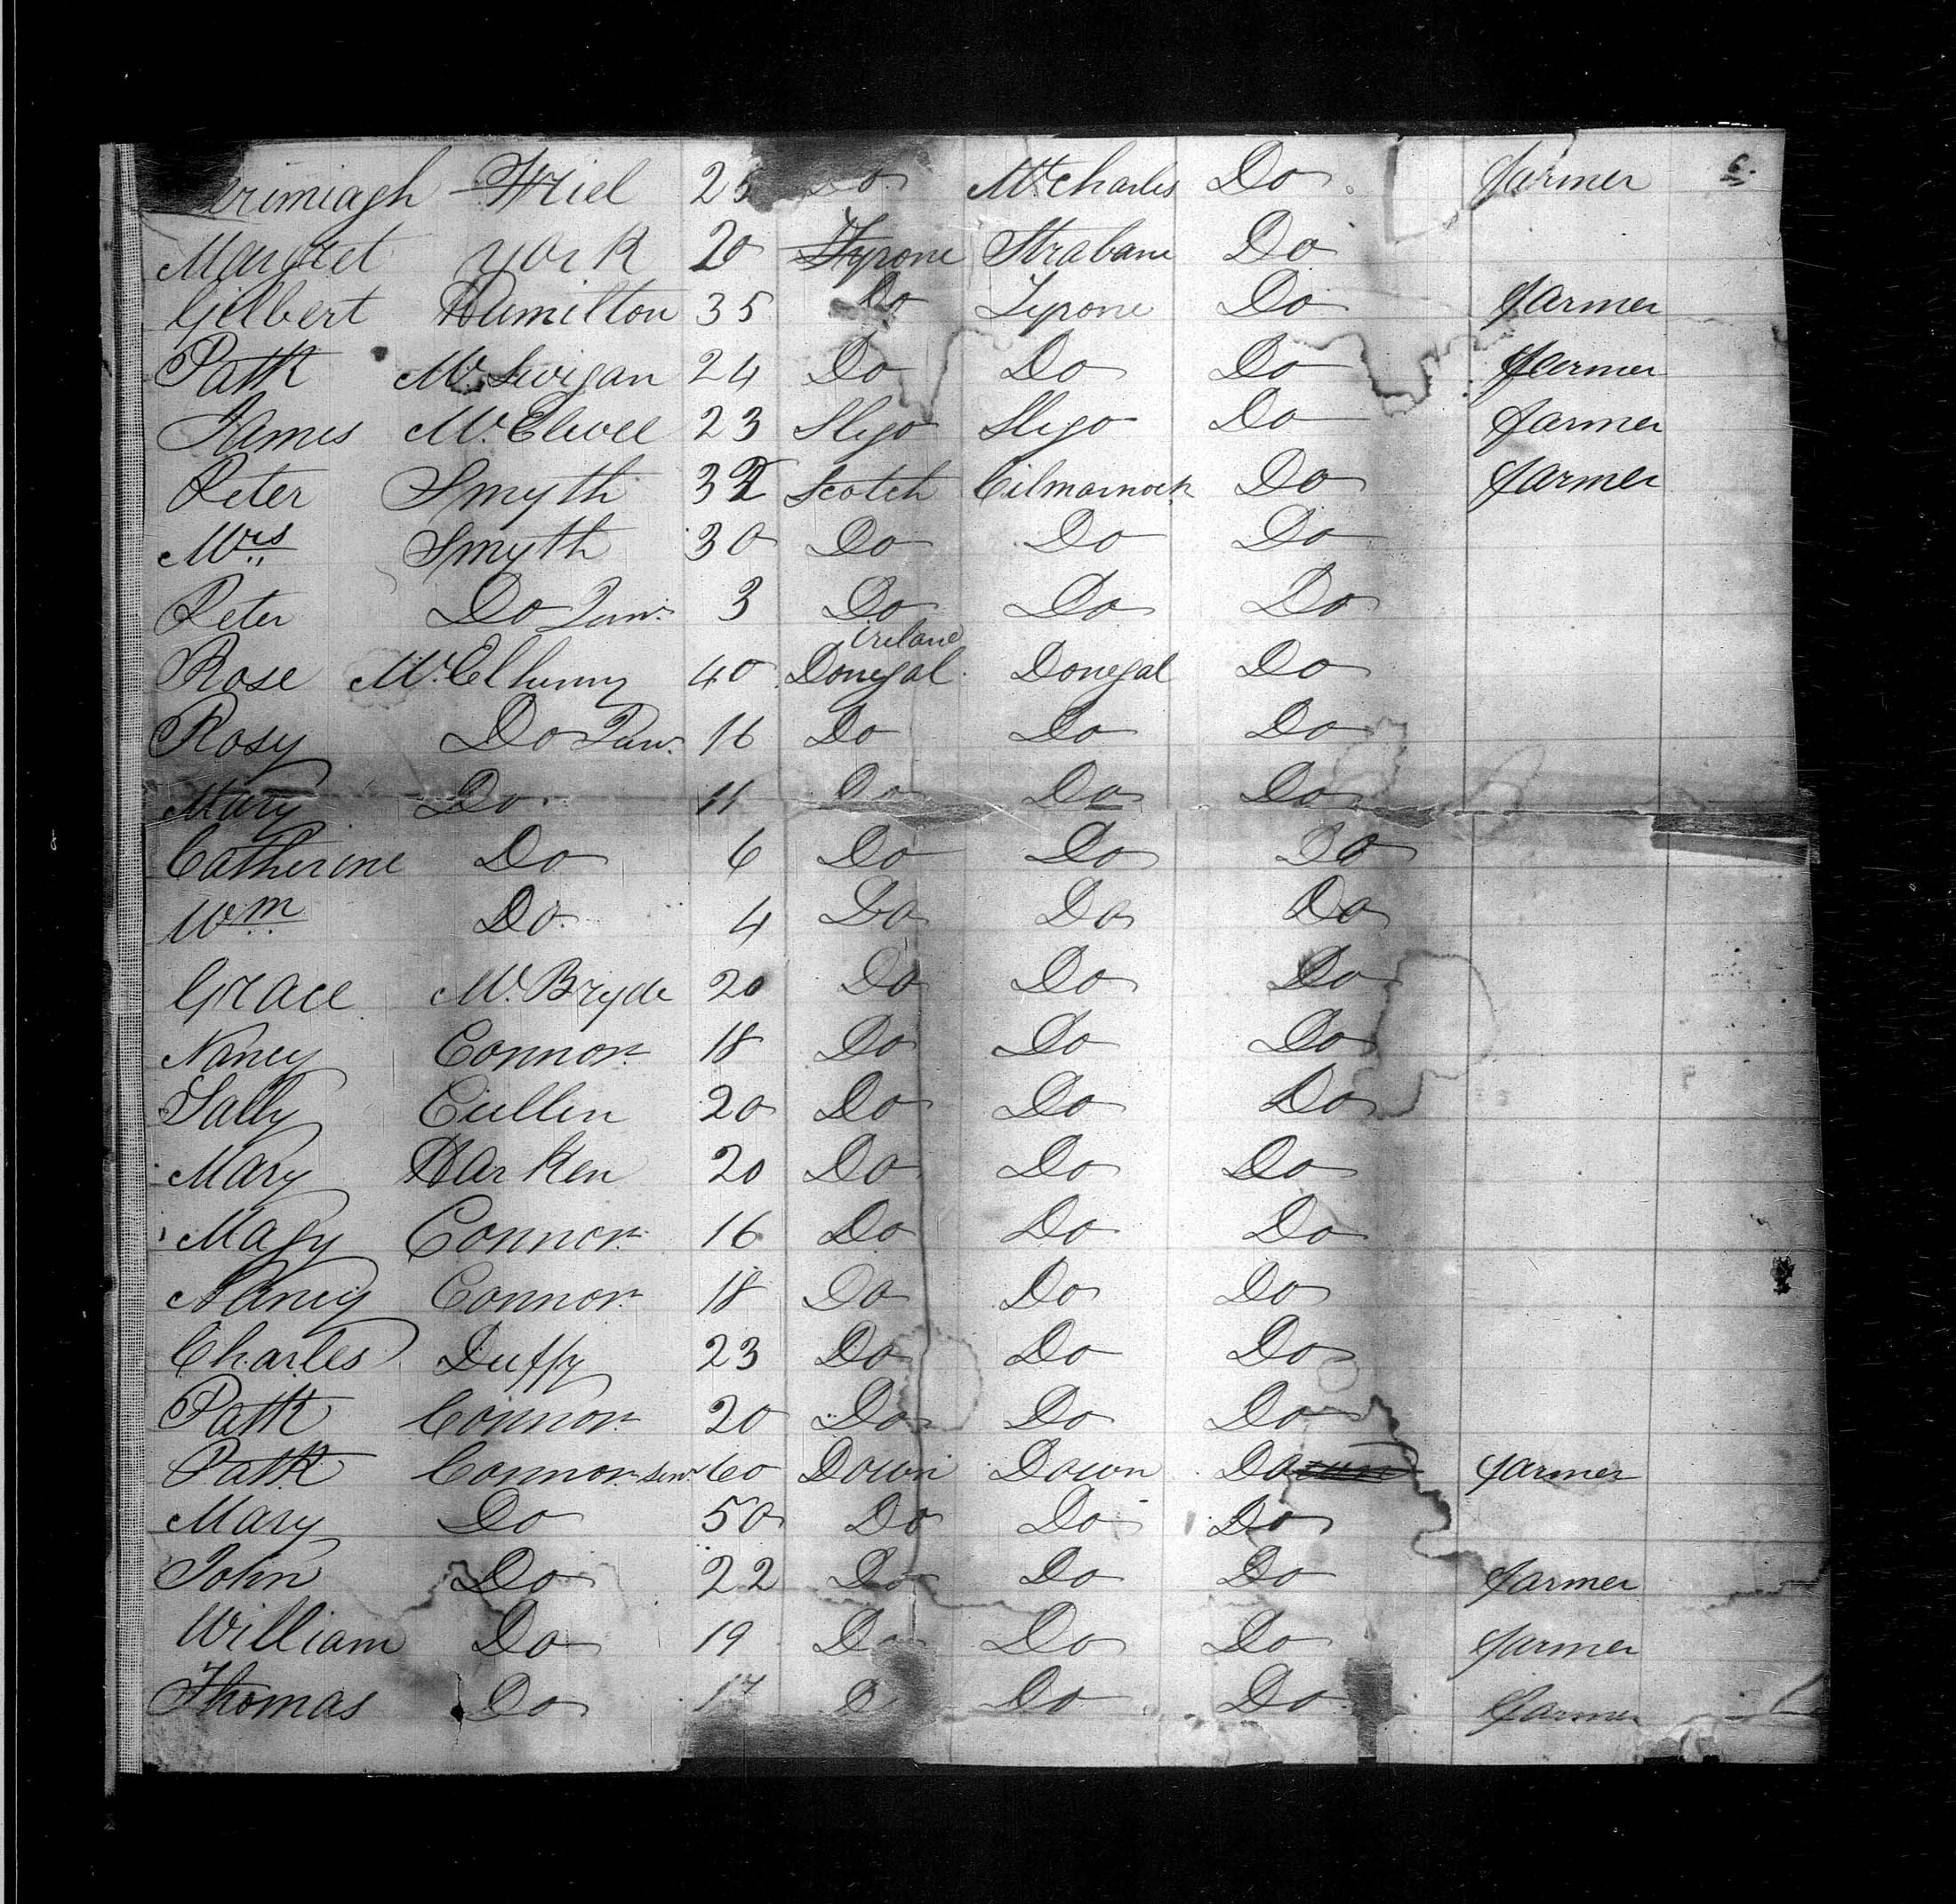 erimiagh Friel 25 Do Mt Charles Do farmer 6.
Margret York 20 Tyrone Strabane Do
Gilbert Hamilton 35 Do Tyrone Do farmer
Patk McSwigan 24 Do Do Do farmer
James McElwee 23 Sligo Sligo Do farmer
Peter Smyth 32 Scotch Cilmarnock Do farmer
Mrs Smyth 30 Do Do Do
Peter Do Junr 3 Do Do Do
Ireland
Rose McElhinny 40 Donegal Donegal Do
Rosy Do Junr. 16 Do Do Do
Mary Do 11 Do Do Do
Catherine Do 6 Do Do Do
Wm Do 4 Do Do Do
Grace McBryde 20 Do Do Do
Nancy Connor 18 Do Do Do
Sally Cullin 20 Do Do Do
Mary Harken 20 Do Do Do
Magy Connor 16 Do Do Do
Nancy Connor 18 Do Do Do
Charles Duffy 23 Do Do Do
Patk Connor 20 Do Do Do
Patk Connor senr 60 Down Down Do farmer
Mary Do 50 Do Do Do
John Do 22 Do Do Do farmer
William Do 19 Do Do Do farmer
Thomas Do 17 D Do Do farmer